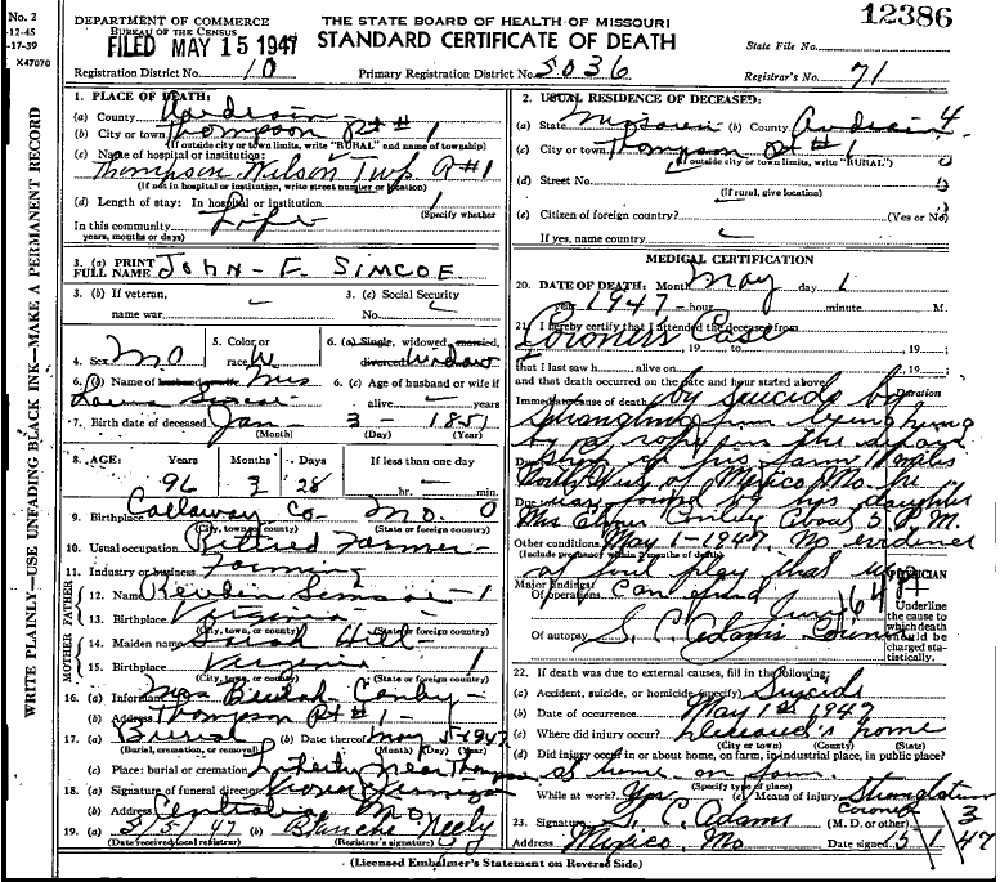 No. 2
-12-45
-17-39
X47070
12386
DEPARTMENT OF COMMERCE
BUREAU OF THE CENSUS
FILED MAY 15 1947
THE STATE BOARD OF HEALTH OF MISSOURI
STANDARD CERTIFICATE OF DEATH
State File No.
Registration District No. 10
Primary Registration District No. 5036
Registrar's No. 71
WRITE PLAINLY—USE UNFADING BLACK INK—MAKE A PERMANENT RECORD
1. PLACE OF DEATH:
(a) County Audrain
(b) City or town Thompson Rt # 1
(If outside city or town limits, write "RURAL" and name of township)
(c) Name of hospital or institution:
Thompson Wilson Twp R #1
(If not in hospital or institution, write street number or location)
(d) Length of stay: In hospital or institution
(Specify whether
In this community Life
years, months or days)
3. (a) PRINT
FULL NAME JOHN - F. SIMCOE
3. (b) If veteran,
name war
3. (c) Social Security
No.
4. Sex M
5. Color or
race W
6. (a) Single, widowed, married,
divorced Widow
6. (b) Name of husband or wife Mrs
Simcoe
6. (c) Age of husband or wife if
alive years
7. Birth date of deceased Jan - 3 - 1851
(Month) (Day) (Year)
8. AGE: Years Months Days If less than one day
96 3 28 hr. min.
9. Birthplace Callaway Co. Mo. 0
(City, town, or county) (State or foreign country)
10. Usual occupation Retired Farmer -
11. Industry or business Farming
FATHER
12. Name Reuben Simcoe - 1
13. Birthplace Virginia
(City, town, or county) (State or foreign country)
MOTHER
14. Maiden name Hill
15. Birthplace Virginia 1
(City, town, or county) (State or foreign country)
16. (a) Informant Mrs Beulah
(b) Address Thompson Rt # 1 -
17. (a) Burial (b) Date thereof May 5-1947
(Burial, cremation, or removal) (Month) (Day) (Year)
(c) Place: burial or cremation near Thompson
18. (a) Signature of funeral director
(b) Address Centralia Mo
19. (a) 5/5/47 (b) Blanche Neely
(Date received local registrar) (Registrar's signature)
2. USUAL RESIDENCE OF DECEASED:
(a) State Missouri (b) County Audrain 4
(c) City or town Thompson Rt # 1
(If outside city or town limits, write "RURAL") 0
(d) Street No.
(If rural, give location)
(e) Citizen of foreign country? (Yes or No)
If yes, name country
MEDICAL CERTIFICATION
20. DATE OF DEATH: Month May day 1
year 1947 hour minute M.
21. I hereby certify that I attended the deceased from
Coroner's Case
, 19 , to , 19 ;
that I last saw h alive on , 19 ;
and that death occurred on the date and hour stated above.
Duration
Immediate cause of death by suicide by
strangling from being hung
by a rope in the
shop of his farm 11 miles
Due to
North West of Mexico Mo. he
Due to was found by his daughter
Mrs Elmer about 5. P.M.
Other conditions May 1-1947, No evidence
(Include pregnancy within 3 months of death)
of foul play that
Major findings: PHYSICIAN
Of operations can find
164
Underline
the cause to
which death
should be
charged sta-
tistically.
Of autopsy S. C. Adams Coroner
22. If death was due to external causes, fill in the following:
(a) Accident, suicide, or homicide (specify) Suicide
(b) Date of occurrence May 1st 1947
(c) Where did injury occur? Deceased's home
(City or town) (County) (State)
(d) Did injury occur in or about home, on farm, in industrial place, in public place?
at home on farm.
(Specify type of place)
While at work? (e) Means of injury Strangulation
Coroner
23. Signature S. C. Adams (M. D. or other) 3
Address Mexico, Mo Date signed 5/1/47
(Licensed Embalmer's Statement on Reverse Side)